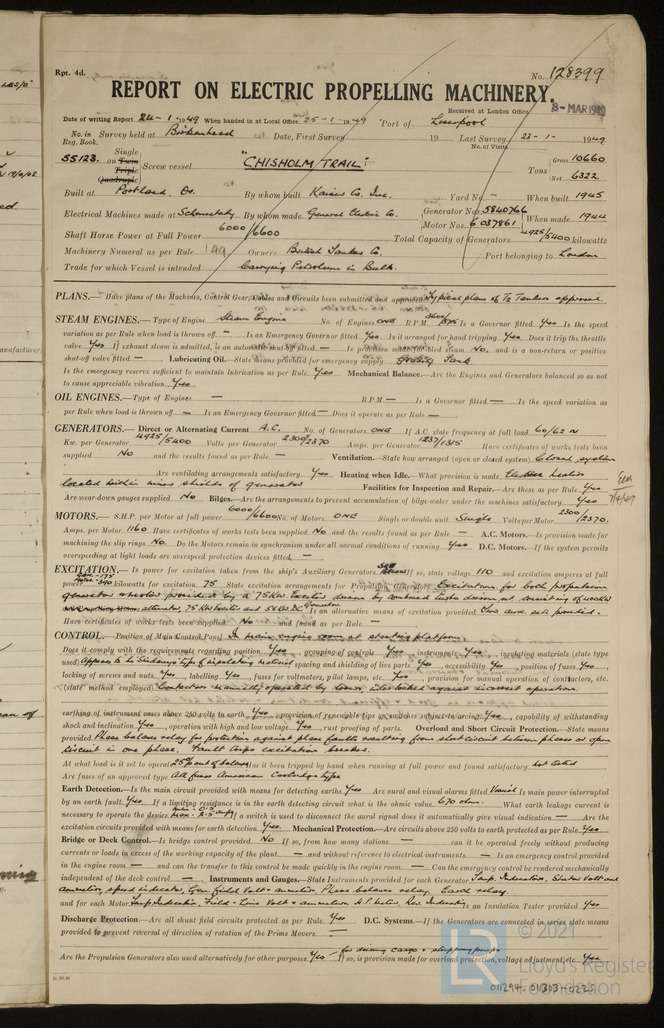 Rpt. 4d.
No. 128399
REPORT ON ELECTRIC PROPELLING MACHINERY.
Received at London Office
8-MAR 1949
Date of writing Report 24-1-1949 When handed in at Local Office 25-1-1949 Port of Liverpool
No. in Survey held at Birkenhead Date, First Survey 19 Last Survey 23-1- 1949
Reg. Book. No. of Visits
55123. on Single Twin Triple Quadruple Screw vessel "CHISHOLM TRAIL". Tons Gross 10660 Net 6322
Built at Portland, Or. By whom built Kaiser Co. Inc. Yard No. — When built 1945
Electrical Machines made at Schenectady By whom made General Electric Co. Generator Nos 5840766 Motor Nos. 6037861 When made 1944
Shaft Horse Power at Full Power 6000/6600 Total Capacity of Generators 4925/5400 kilowatts
Machinery Numeral as per Rule Owners British Tanker Co. Port belonging to London
Trade for which Vessel is intended Carrying Petroleum in Bulk.
PLANS.— Have plans of the Machines, Control Gear, Cables and Circuits been submitted and approved Typical plans of T2 Tankers approved.
STEAM ENGINES.— Type of Engine Steam Engine No. of Engines ONE R.P.M Is a Governor fitted Yes Is the speed
variation as per Rule when load is thrown off — Is an Emergency Governor fitted Yes Is it arranged for hand tripping Yes Does it trip the throttle
valve Yes If exhaust steam is admitted, is an automatic shut-off fitted — Is provision made for bled steam No. and is a non-return or positive
shut-off valve fitted — Lubricating Oil.—State means provided for emergency supply Gravity Tank
Is the emergency reserve sufficient to maintain lubrication as per Rule Yes Mechanical Balance.—Are the Engines and Generators balanced so as not
to cause appreciable vibration Yes
OIL ENGINES.—Type of Engines — R.P.M — Is a Governor fitted — Is the speed variation as
per Rule when load is thrown off — Is an Emergency Governor fitted — Does it operate as per Rule —
GENERATORS.— Direct or Alternating Current A.C. No. of Generators ONE If A.C. state frequency at full load 60/62 N
Kw. per Generator 4925/5400 Volts per Generator 2300/2370 Amps. per Generator 1237/1315 Have certificates of works tests been
supplied No and the results found as per Rule — Ventilation.—State how arranged (open or closed system) Closed system
Are ventilating arrangements satisfactory Yes Heating when Idle.—What provision is made Electric heaters
located within shields of generator Facilities for Inspection and Repair.—Are these as per Rule Yes
Are wear-down gauges supplied No Bilges.—Are the arrangements to prevent accumulation of bilge-water under the machines satisfactory Yes
MOTORS.— S.H.P. per Motor at full power 6000/6600 No. of Motors ONE Single or double unit Single Volts per Motor 2300/2370.
Amps. per Motor 1160 Have certificates of works tests been supplied No and the results found as per Rule — A.C. Motors.—Is provision made for
machining the slip rings No. Do the Motors remain in synchronism under all normal conditions of running Yes D.C. Motors.—If the system permits
overspeeding at light loads are overspeed protection devices fitted. —
EXCITATION.— Is power for excitation taken from the ship's Auxiliary Generators If so, state voltage 110 and excitation amperes at full
power kilowatts for excitation 75 State excitation arrangements for Propulsion Generators Excitation for both propulsion
generator & motor provided by a 75 KW. Exciter driven by turbine consisting of 400 KW
alternator, 75 KW Exciter and 55 KW. DC Generator Is an alternative means of excitation provided Two aux. sets provided.
Have certificates of works tests been supplied No and found as per Rule —
CONTROL.— Position of Main Control Panel In main engine room at starting platform
Does it comply with the requirements regarding position Yes, grouping of controls Yes, instruments Yes, insulating materials (state type
used) Appears to be Sindanyo type of insulating material spacing and shielding of live parts Yes, accessibility Yes, position of fuses Yes,
locking of screws and nuts Yes, labelling Yes, fuses for voltmeters, pilot lamps, etc. Yes, provision for manual operation of contactors, etc.
(state method employed) Contactors manually operated by levers, interlocked against incorrect operation.
earthing of instrument cases above 250 volts to earth Yes, provision of renewable tips to switches subject to arcing Yes, capability of withstanding
shock and inclination Yes, operation with high and low voltage Yes, rust proofing of parts. Overload and Short Circuit Protection.—State means
provided Phase balance relay for protection against phase faults resulting from short circuit between phases or open
circuit in one phase. Fault trips excitation breaker.
At what load is it set to operate 25% out of balance has it been tripped by hand when running at full power and found satisfactory Not tested
Are fuses of an approved type All fuses American Cartridge type
Earth Detection.—Is the main circuit provided with means for detecting earths Yes Are aural and visual alarms fitted Visual Is main power interrupted
by an earth fault. Yes If a limiting resistance is in the earth detecting circuit what is the ohmic value. 670 ohms. What earth leakage current is
necessary to operate the device If a switch is used to disconnect the aural signal does it automatically give visual indication — Are the
excitation circuits provided with means for earth detection. Yes. Mechanical Protection.—Are circuits above 250 volts to earth protected as per Rule Yes
Bridge or Deck Control.—Is bridge control provided No If so, from how many stations — can it be operated freely without producing
currents or loads in excess of the working capacity of the plant — and without reference to electrical instruments — Is an emergency control provided
in the engine room — and can the transfer to this control be made quickly in the engine room. — Can the emergency control be rendered mechanically
independent of the deck control — Instruments and Gauges.—State Instruments provided for each Generator Temp. Indicators, Stator Volt and
ammeters, speed indicator, Gen. field Volt & ammeter, Phase balance relay. Earth relay.
and for each Motor Temp. Indicators, Field & Line Volt & ammeters Is an Insulation Tester provided Yes
Discharge Protection—Are all shunt field circuits protected as per Rule. Yes D.C. Systems.—If the Generators are connected in series state means
provided to prevent reversal of direction of rotation of the Prime Movers —
Are the Propulsion Generators also used alternatively for other purposes Yes for driving Cargo & stripping pumps If so, is provision made for overload protection, voltage adjustment, etc. Yes
© 2021
LR
Lloyd's Register
Foundation
011294-011303-0225